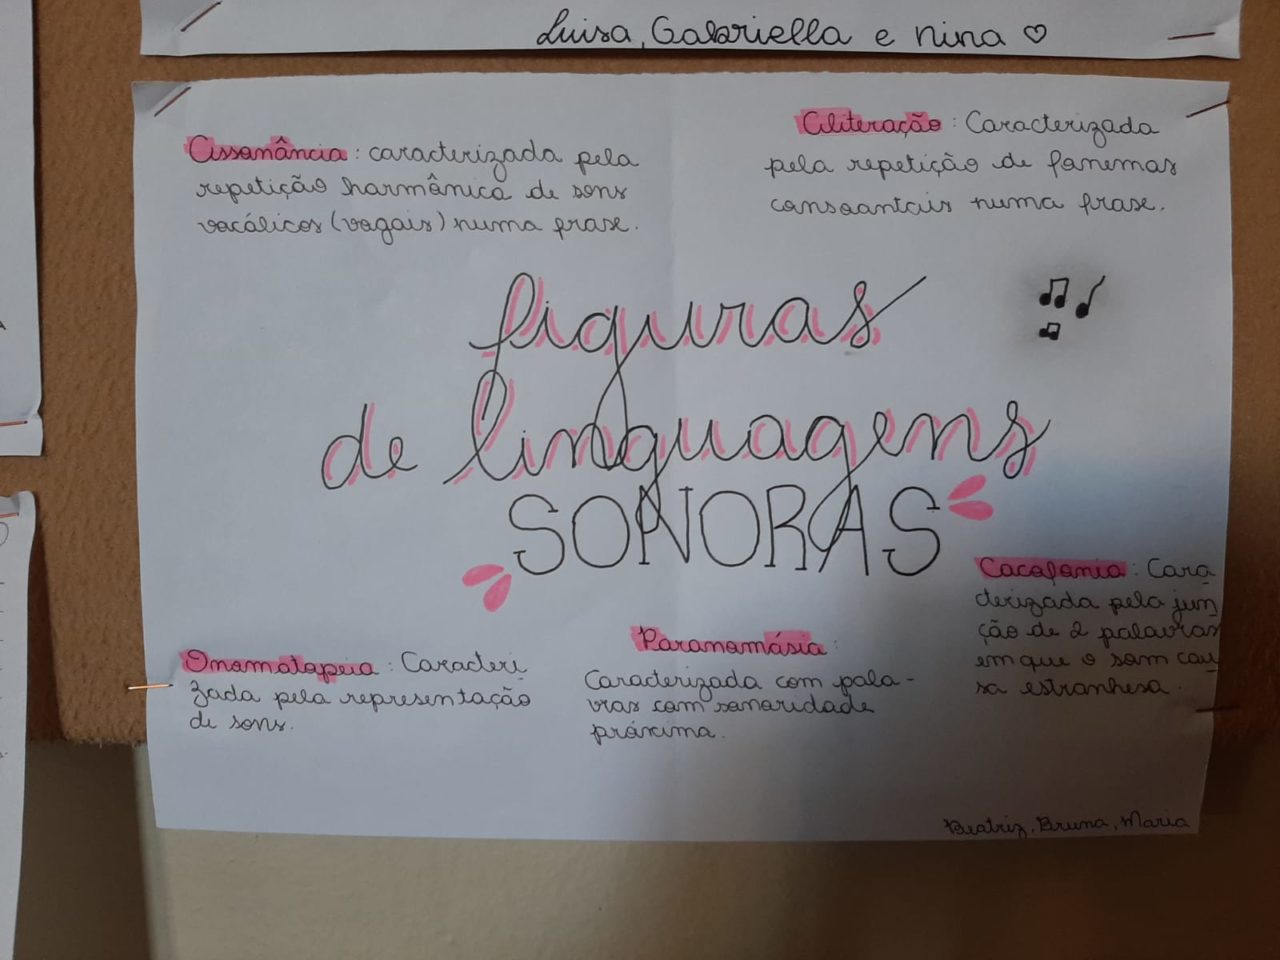 Luisa, Gabriella e nina ♡
Assonância: caracterizada pela
repetição harmônica de sons
vocálicos (vogais) numa frase.
Aliteração: Caracterizada
pela repetição de fonemas
consoantais numa frase.
figuras
de linguagens
SONORAS
Onomatopeia: Caracteri
zada pela representação
de sons.
Paranomásia:
Caracterizada com pala-
vras com sonoridade
próxima.
Cacofonia: Cara
cterizada pela jun
ção de 2 palavras
em que o som cau
sa estranhesa.
Beatriz, Bruna, Maria